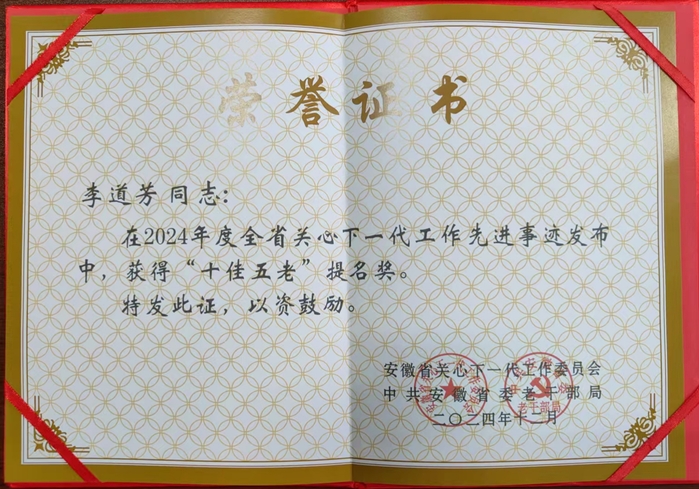 荣誉证书
李道芳同志：
在2024年度全省关心下一代工作先进事迹发布
中，获得“十佳五老”提名奖。
特发此证，以资鼓励。
安徽省关心下一代工作委员会
中共安徽省委老干部局
二〇二四年十二月
老干部局